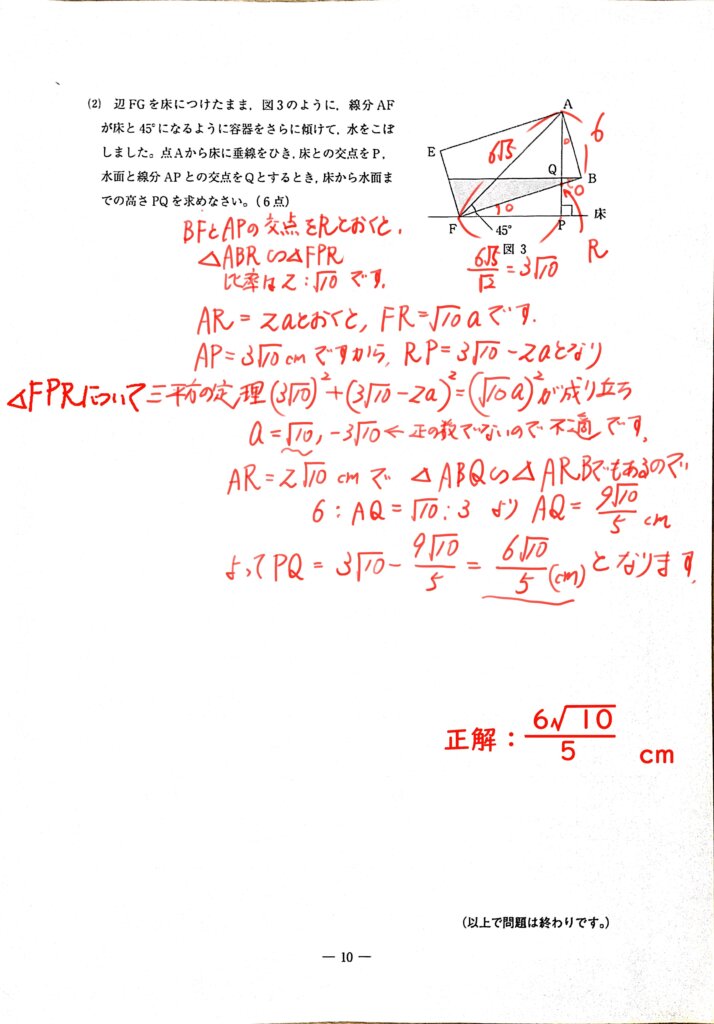 (2) 辺FGを床につけたまま，図3のように，線分AF
が床と45°になるように容器をさらに傾けて，水をこぼ
しました。点Aから床に垂線をひき，床との交点をP，
水面と線分APとの交点をQとするとき，床から水面ま
での高さPQを求めなさい。(6点)
A
6
6√5
E
Q
B
床
F
45°
P
R
図3
6√5/√2=3√10
BFとAPの交点をRとおくと，
△ABR∽△FPR
比率は2:√10です。
AR=2aとおくと，FR=√10aです。
AP=3√10cmですから，RP=3√10-2aとなり
△FPRについて三平方の定理(3√10)²+(3√10-2a)²=(√10a)²が成り立ち
a=√10,-3√10←正の数でないので不適です。
AR=2√10cmで △ABQ∽△ARBでもあるので
6:AQ=√10:3 より AQ=9√10/5 cm
よってPQ=3√10-9√10/5=6√10/5(cm)となります。
正解：6√10/5 cm
(以上で問題は終わりです。)
― 10 ―